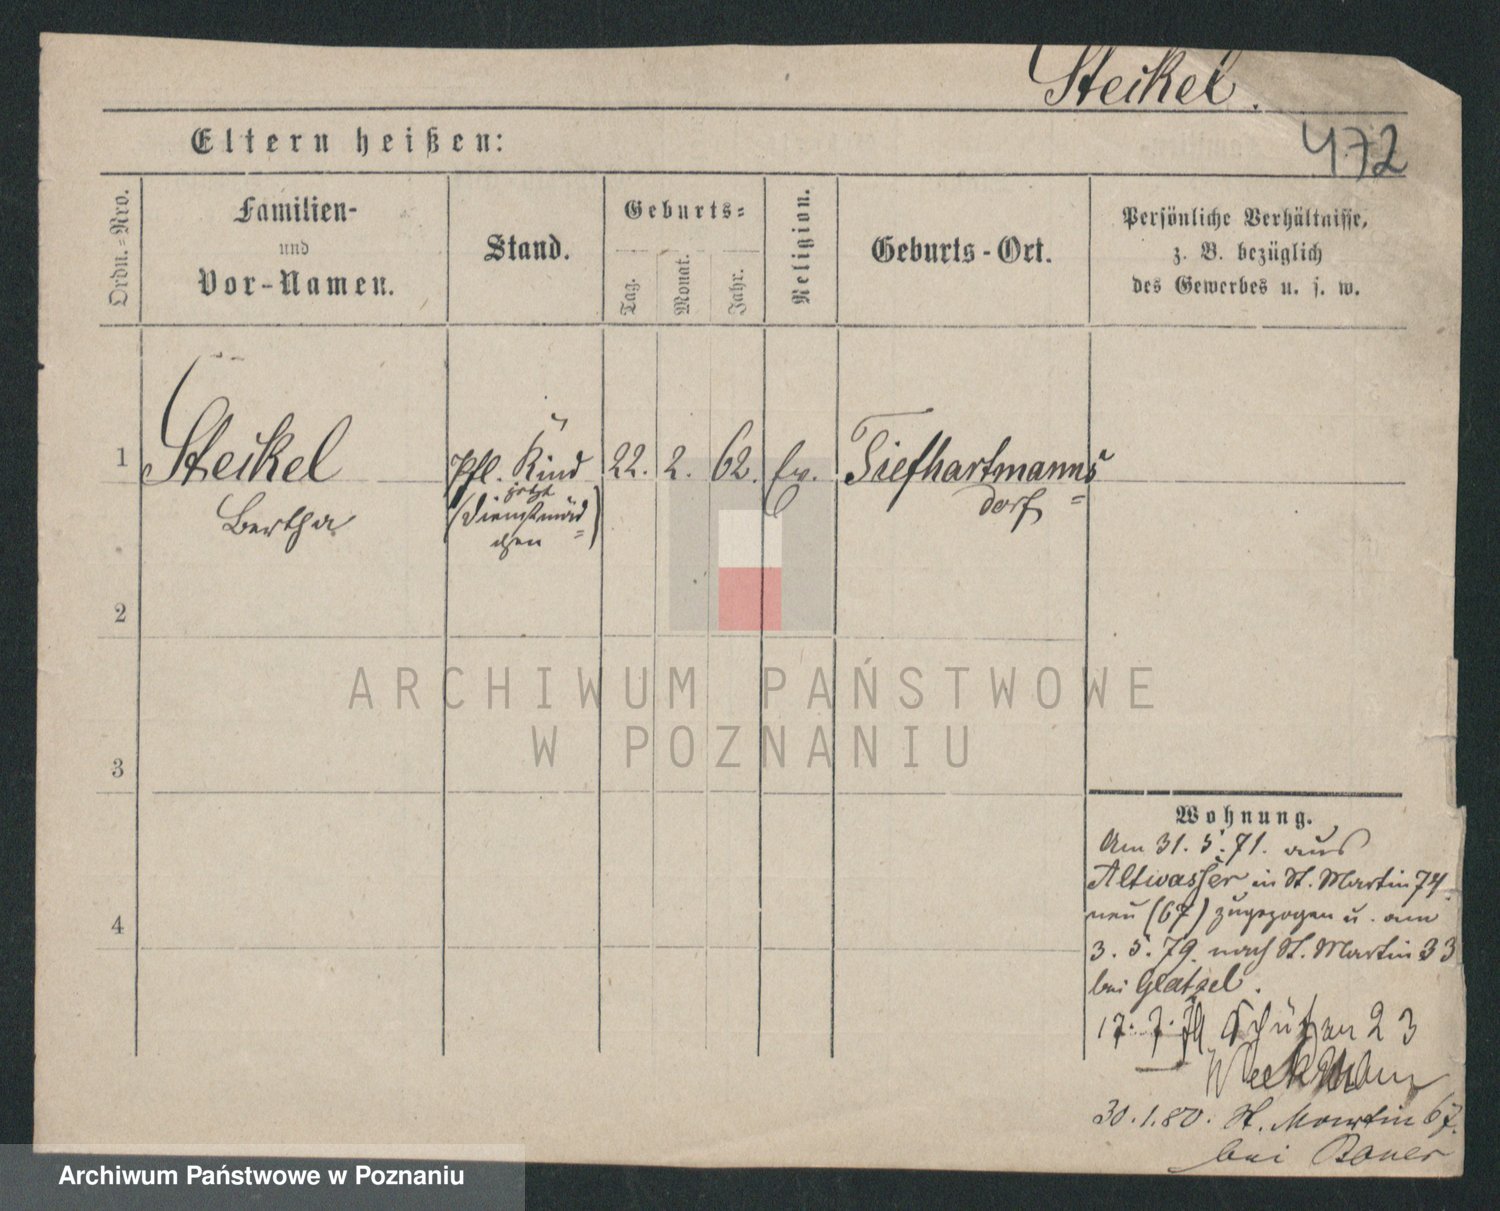 Steikel.
472
Eltern heißen:
Ordn.=Nro.
Familien-
und
Vor-Namen.
Stand.
Geburts=
Tag.
Monat.
Jahr.
Religion.
Geburts-Ort.
Persönliche Verhältnisse,
z. B. bezüglich
des Gewerbes u. s. w.
1 Steikel Pfl. Kind 22. 2. 62. Ev. Tiefhartmanns
jetzt
Bertha (Dienstmäd= dorf =
chen)
2
3
4
ARCHIWUM PAŃSTWOWE
W POZNANIU
Wohnung.
Am 31. 5. 71. aus
Altwasser in St. Martin 74
neu (67) zugezogen u. am
3. 5. 79. nach St. Martin 33
bei Glatzel.
17. 7. 79 Schützen 23
30. 1. 80. St. Martin 67.
bei Bauer
Archiwum Państwowe w Poznaniu